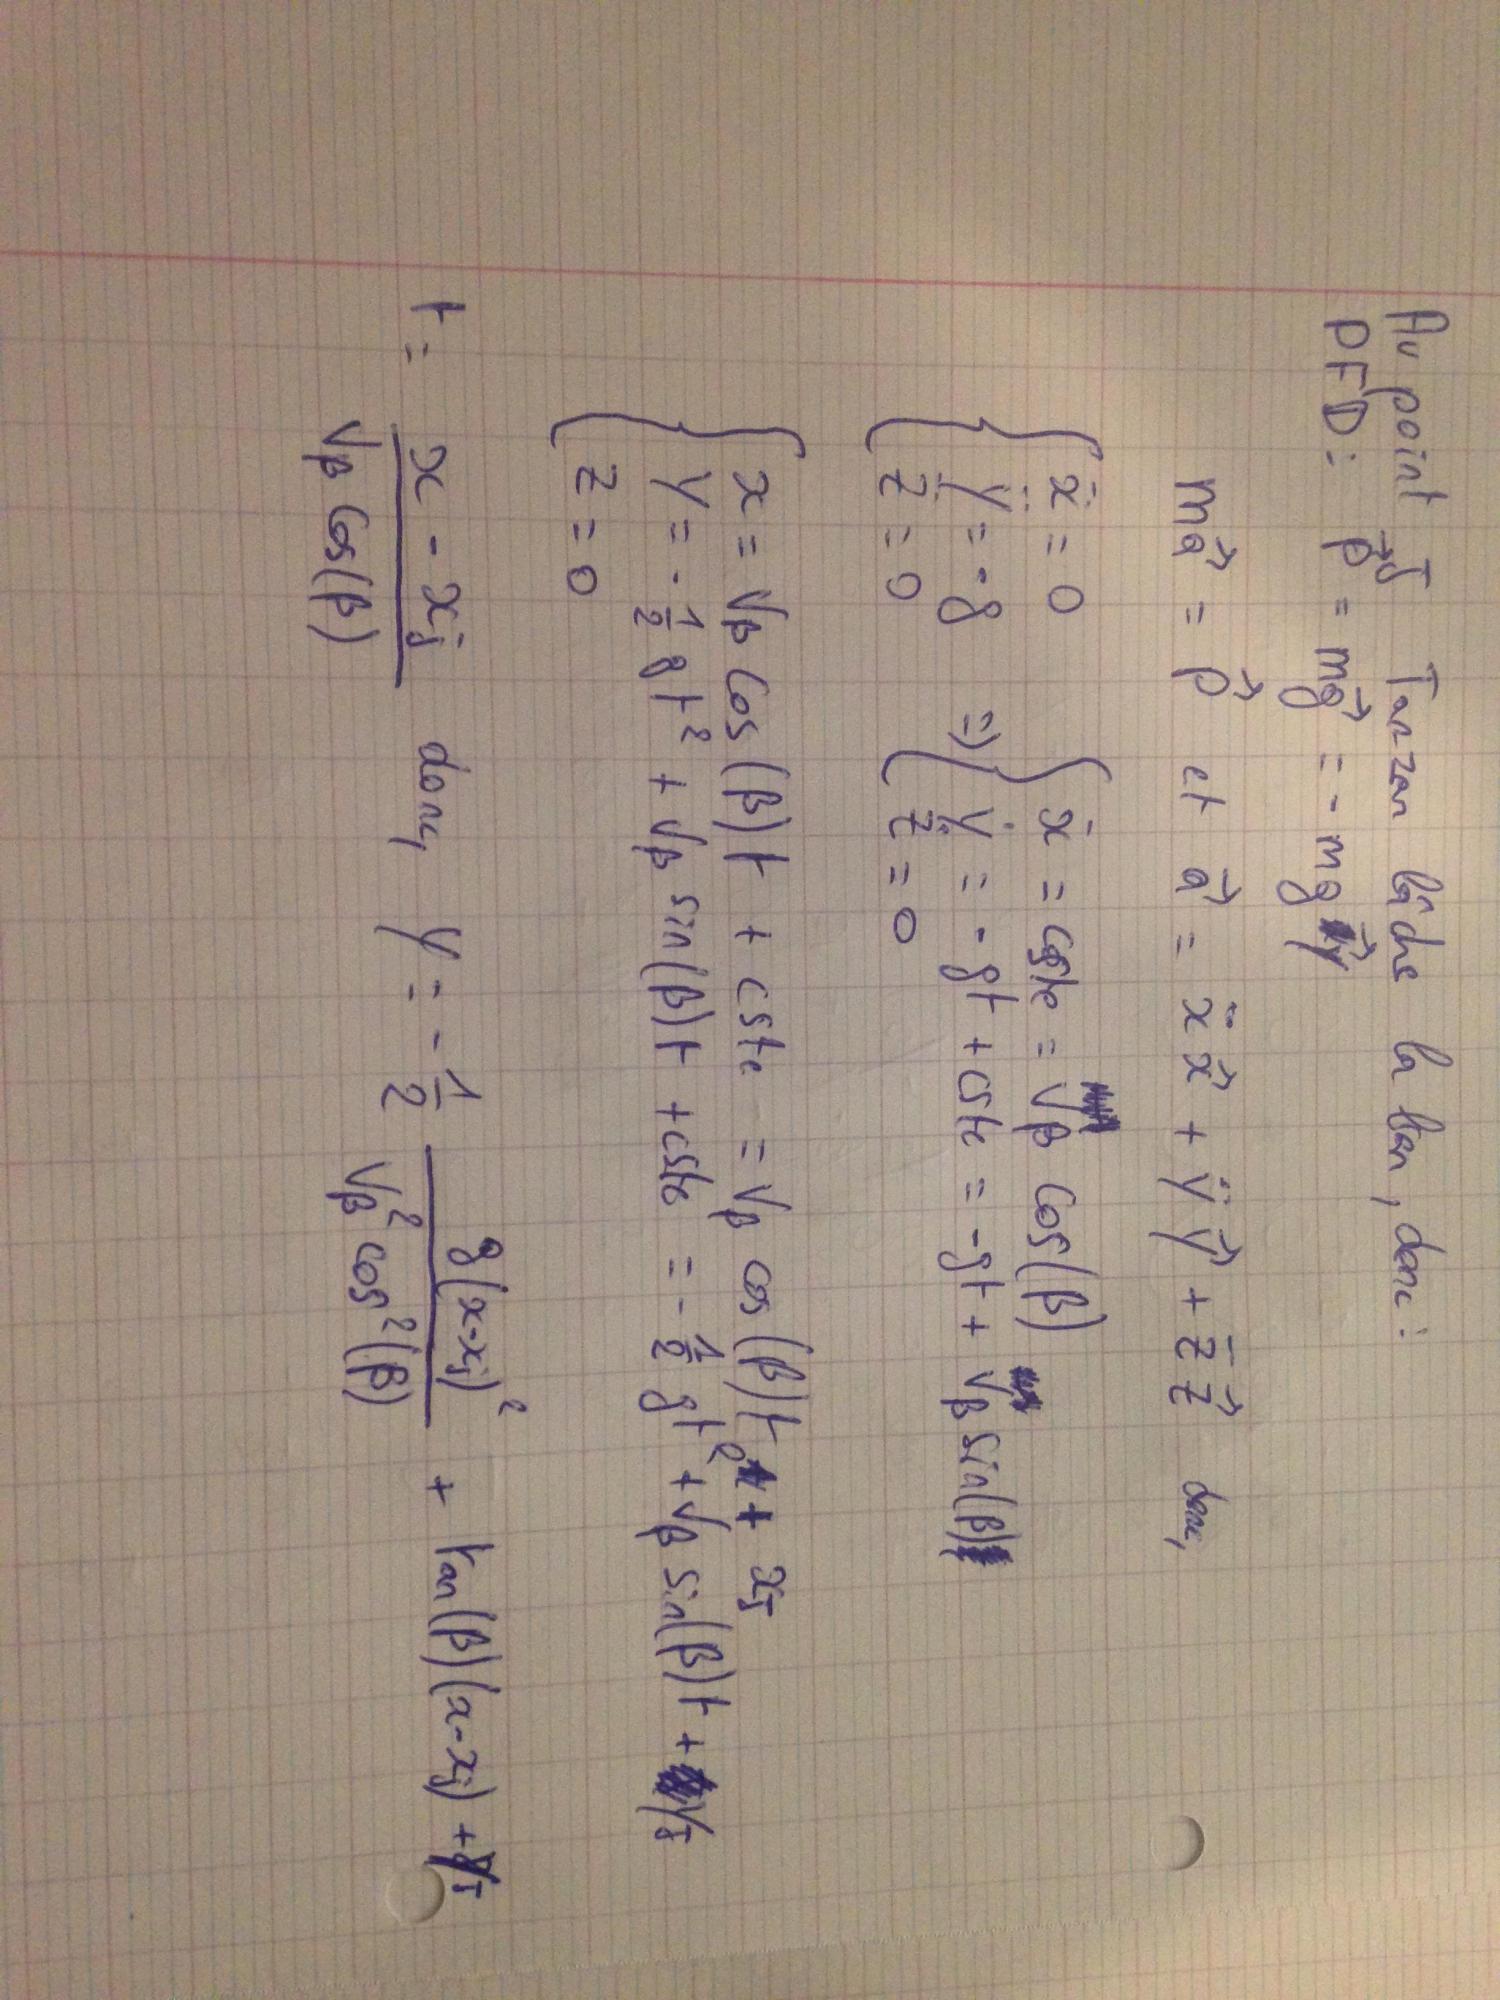 Au point J Tarzan lâche la lian, donc :
PFD : P⃗ = mg⃗ = - mg y⃗
ma⃗ = P⃗ et a⃗ = ẍ x⃗ + ÿ y⃗ + z̈ z⃗ donc,
{ ẍ = 0 { ẋ = cste = Vβ cos(β)
{ ÿ = -g => { ẏ = -gt + cste = -gt + Vβ sin(β)
{ z̈ = 0 { ż = 0
{ x = Vβ cos(β)t + cste = Vβ cos(β)t + xJ
{ y = - 1/2 gt² + Vβ sin(β)t + cste = - 1/2 gt² + Vβ sin(β)t + yJ
{ z = 0
t = (x - xj)/(Vβ cos(β)) donc, y = - 1/2 g(x-xj)²/(Vβ² cos²(β)) + tan(β)(x-xj) + yJ